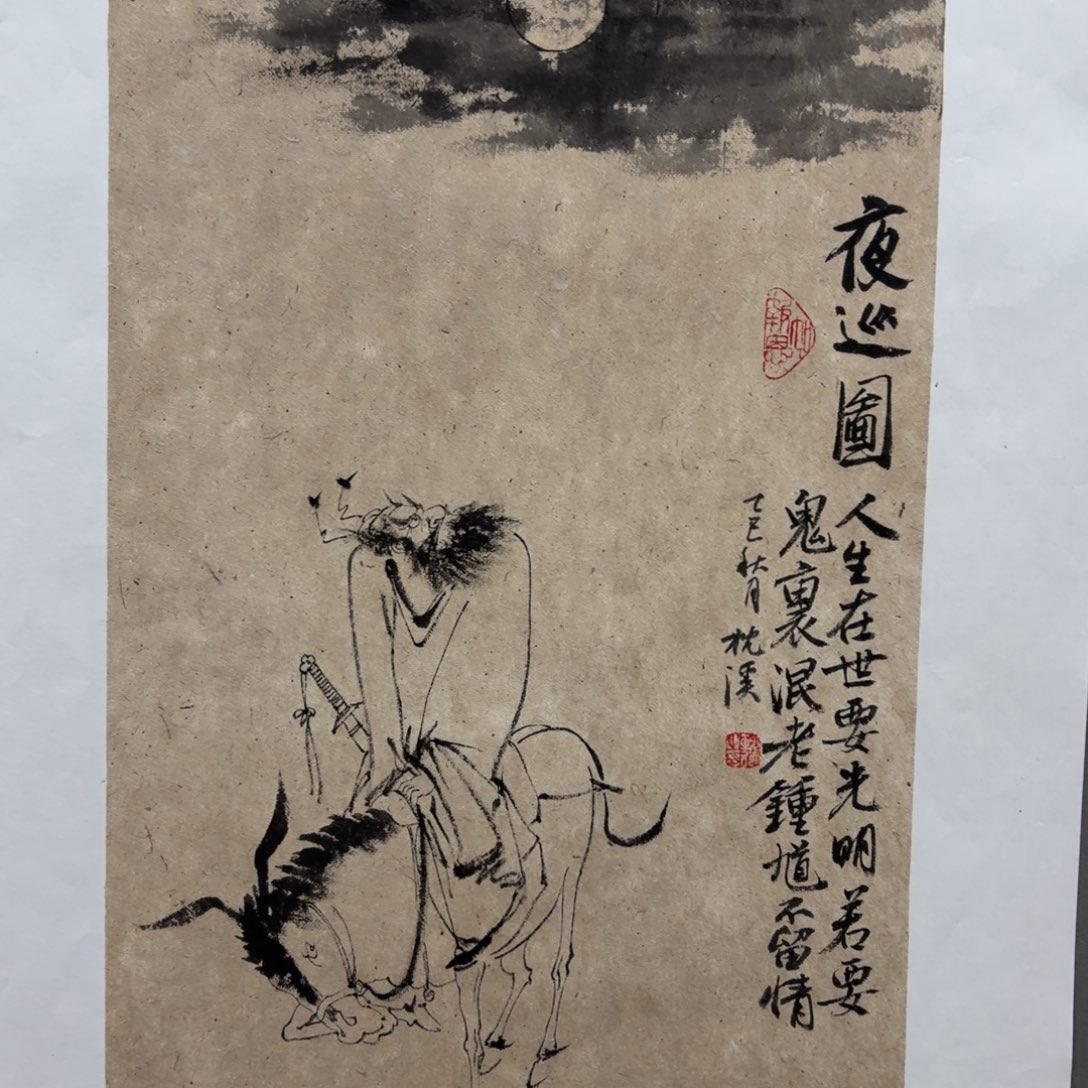 夜巡圖
人生在世要光明若要
鬼裏混老鍾馗不留情
乙巳秋月
枕溪